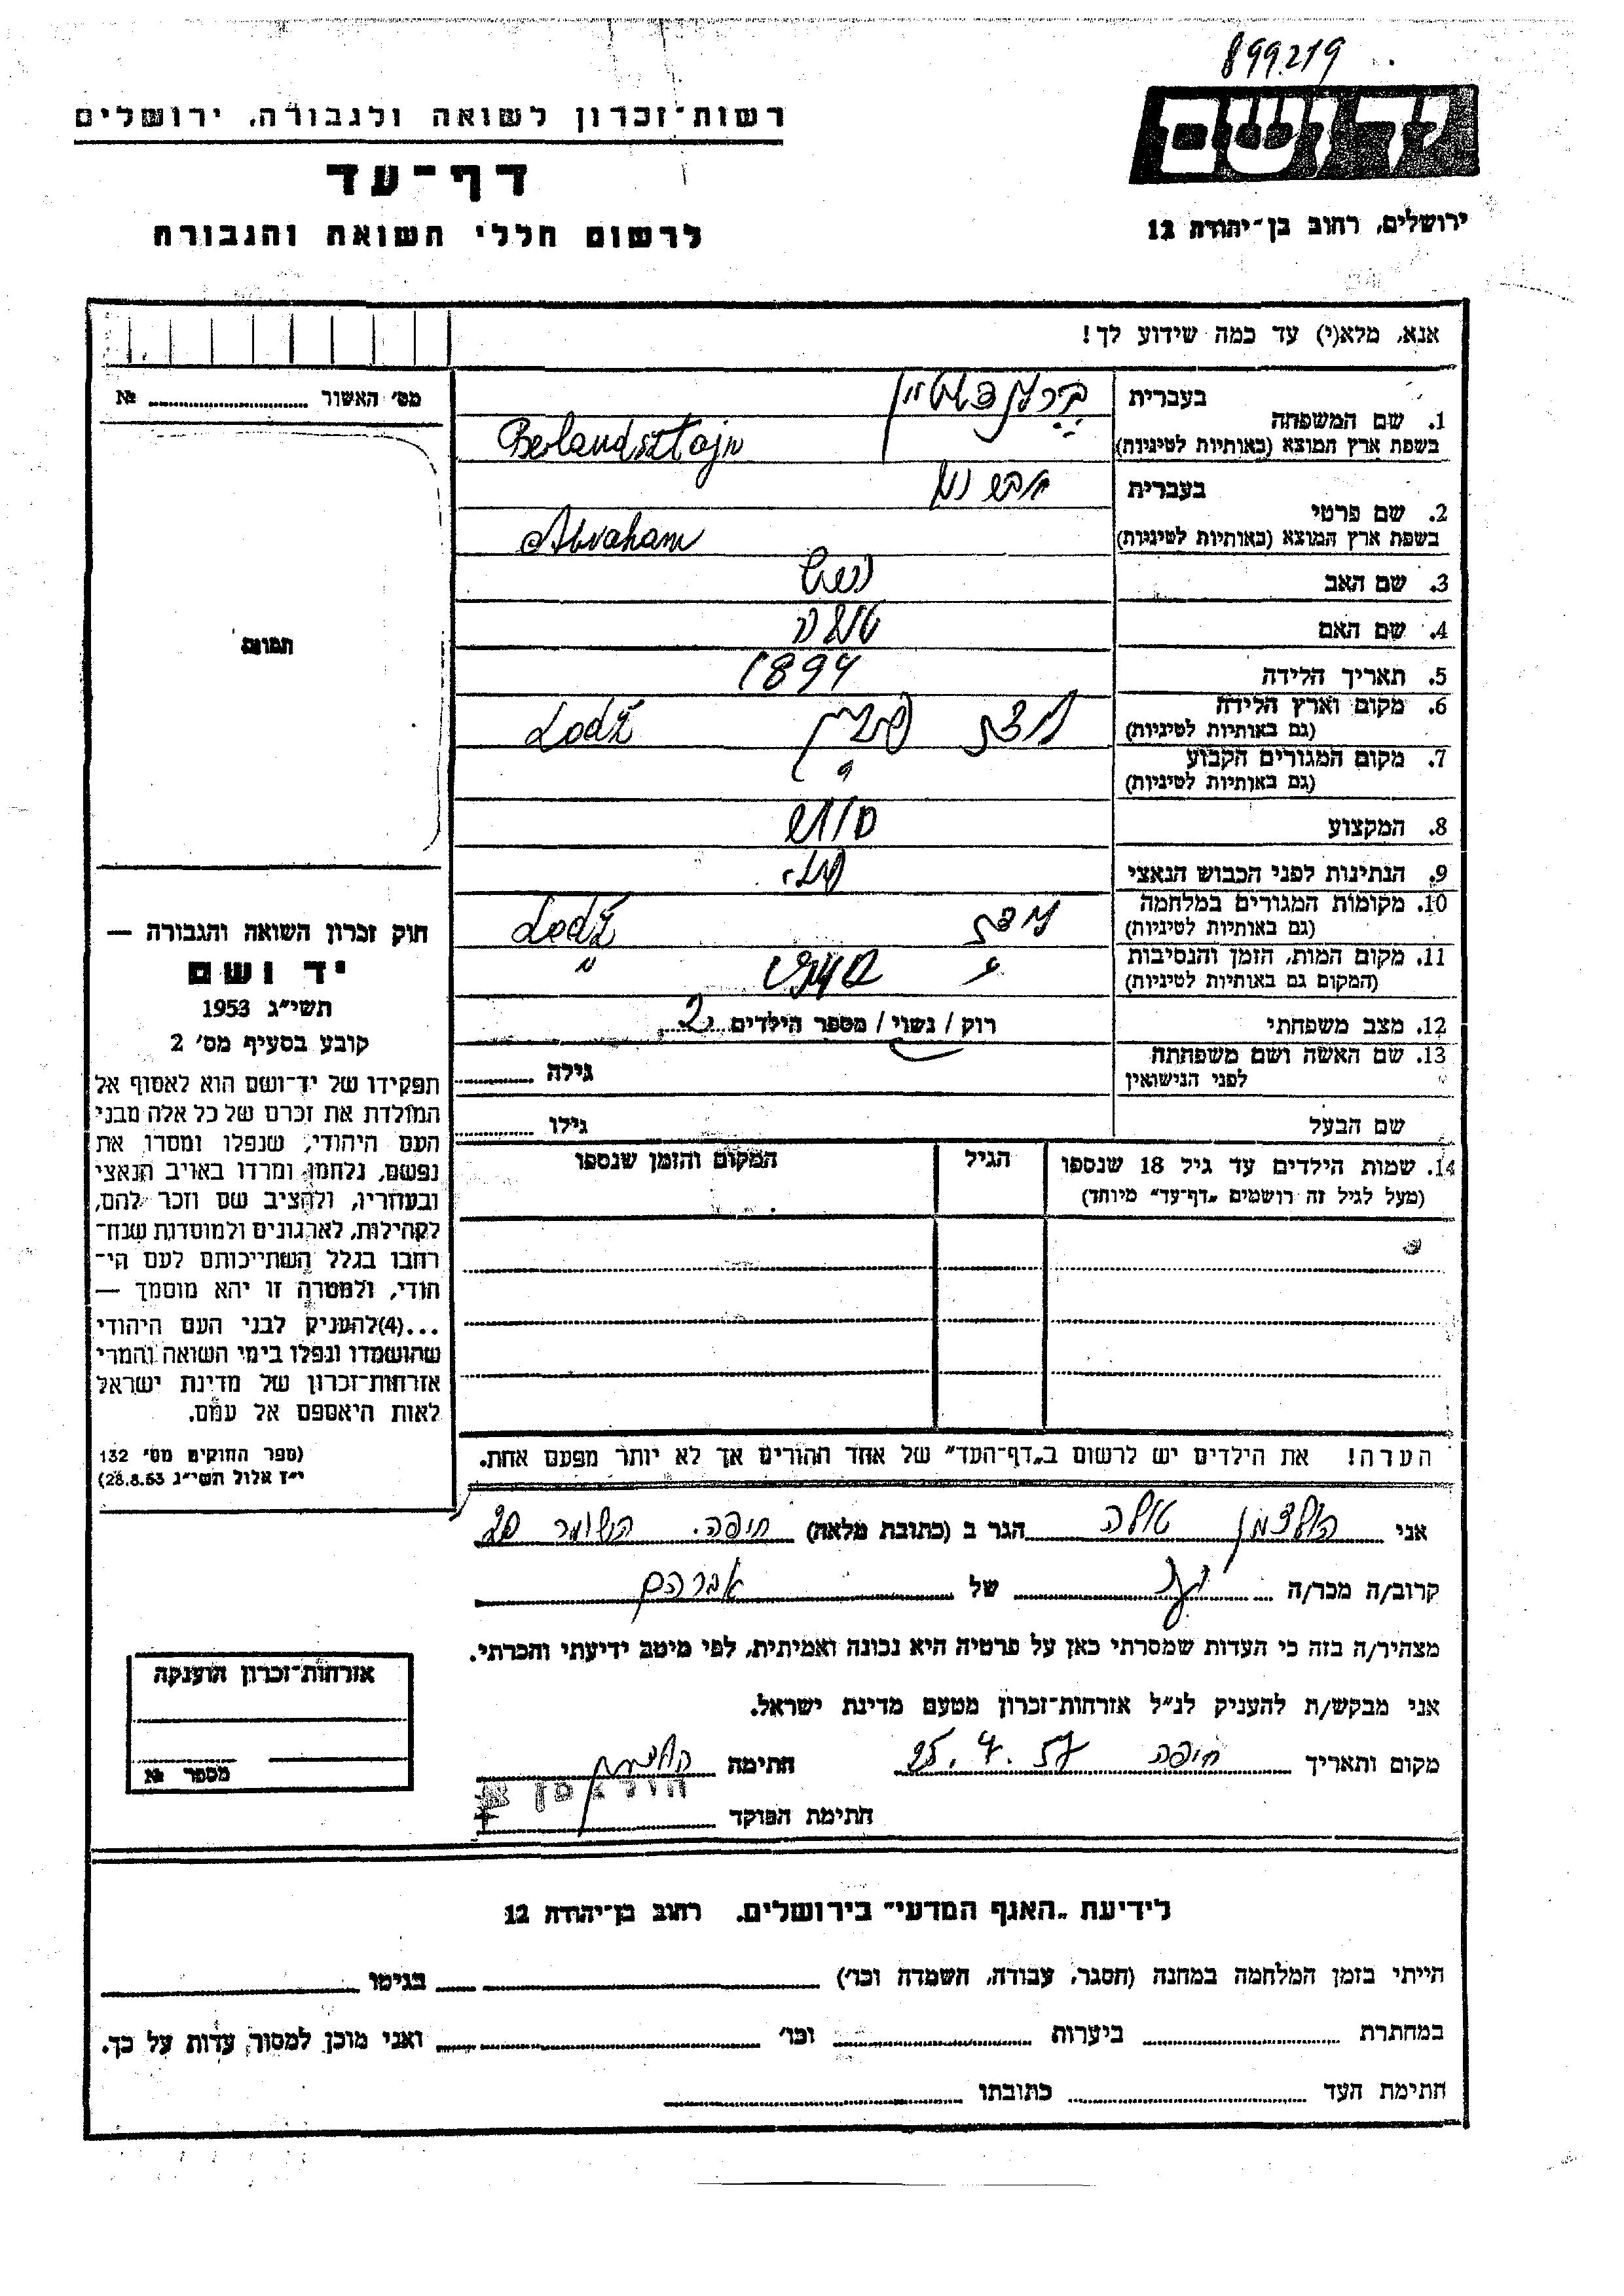 899219
יד ושם
רשות־זכרון לשואה ולגבורה, ירושלים
דף־עד
לרשום חללי השואה והגבורה
ירושלים, רחוב בן־יהודה 12
אנא, מלא(י) עד כמה שידוע לך!
מס׳ האשור ........ №
תמונה
חוק זכרון השואה והגבורה —
יד ושם
תשי״ג 1953
קובע בסעיף מס׳ 2
תפקידו של יד־ושם הוא לאסוף אל
המולדת את זכרם של כל אלה מבני
העם היהודי, שנפלו ומסרו את
נפשם, נלחמו ומרדו באויב הנאצי
ובעוזריו, ולהציב שם וזכר להם,
לקהילות, לארגונים ולמוסדות שנח־
רחבו בגלל השתייכותם לעם הי־
הודי, ולמטרה זו יהא מוסמך —
...(4)להעניק לבני העם היהודי
שהושמדו ונפלו בימי השואה והמרי
אזרחות־זכרון של מדינת ישראל
לאות היאספם אל עמם.
(ספר החוקים מס׳ 132
י״ז אלול תשי״ג 28.8.53)
1. שם המשפחה
בעברית
בשפת ארץ המוצא (באותיות לטיניות) Berlandsztajn
2. שם פרטי
בעברית
בשפת ארץ המוצא (באותיות לטיניות) Abraham
3. שם האב
4. שם האם
5. תאריך הלידה 1894
6. מקום וארץ הלידה
(גם באותיות לטיניות) לודז פולין Lodź
7. מקום המגורים הקבוע
(גם באותיות לטיניות) ?
8. המקצוע סוחר
9. הנתינות לפני הכבוש הנאצי פולני
10. מקומות המגורים במלחמה
(גם באותיות לטיניות) לודז Lodź
11. מקום המות, הזמן והנסיבות
(המקום גם באותיות לטיניות)
12. מצב משפחתי רוק / נשוי / מספר הילדים 2
13. שם האשה ושם משפחתה
לפני הנישואין גילה
שם הבעל גילו
14. שמות הילדים עד גיל 18 שנספו הגיל המקום והזמן שנספו
(מעל לגיל זה רושמים „דף־עד״ מיוחד)
הערה! את הילדים יש לרשום ב„דף־העד״ של אחד ההורים אך לא יותר מפעם אחת.
אני הולצמן טולה הגר ב (כתובת מלאה) חיפה. השומר 20
קרוב/ה מכר/ה של אברהם
מצהיר/ה בזה כי העדות שמסרתי כאן על פרטיה היא נכונה ואמיתית, לפי מיטב ידיעתי והכרתי.
אני מבקש/ת להעניק לנ״ל אזרחות־זכרון מטעם מדינת ישראל.
מקום ותאריך חיפה 25.4.57 חתימה הולצמן
חתימת הפוקד
אזרחות־זכרון הוענקה
מספר №
לידיעת „האגף המדעי״ בירושלים, רחוב בן־יהודה 12
הייתי בזמן המלחמה במחנה (הסגר, עבודה, השמדה וכו׳) בגיטו
במחתרת ביערות וכו׳ ואני מוכן למסור עדות על כך.
חתימת העד כתובתו